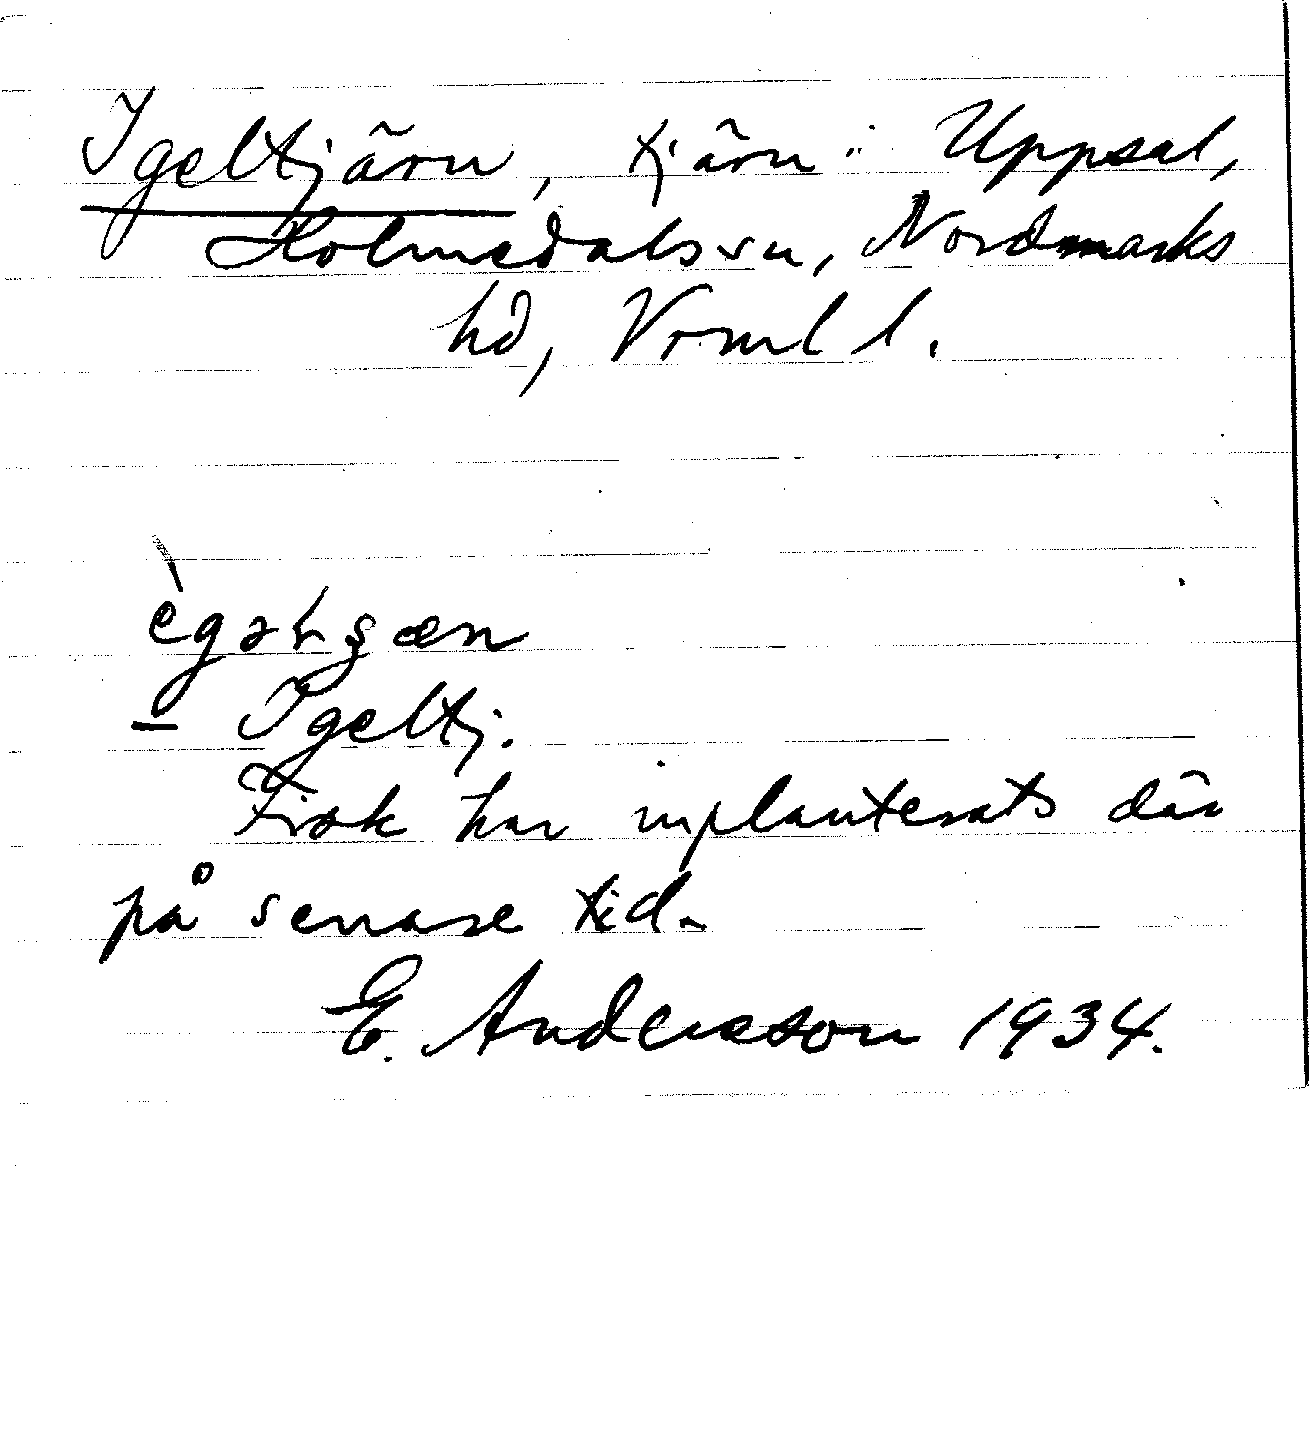 Igeltjärn, tjärn i Uppsal,
Holmedals sn, Nordmarks
hd, Vrml l.
ègəlʂæn
– Igeltj.
Fisk har inplanterats där
på senare tid.
E. Andersson 1934.